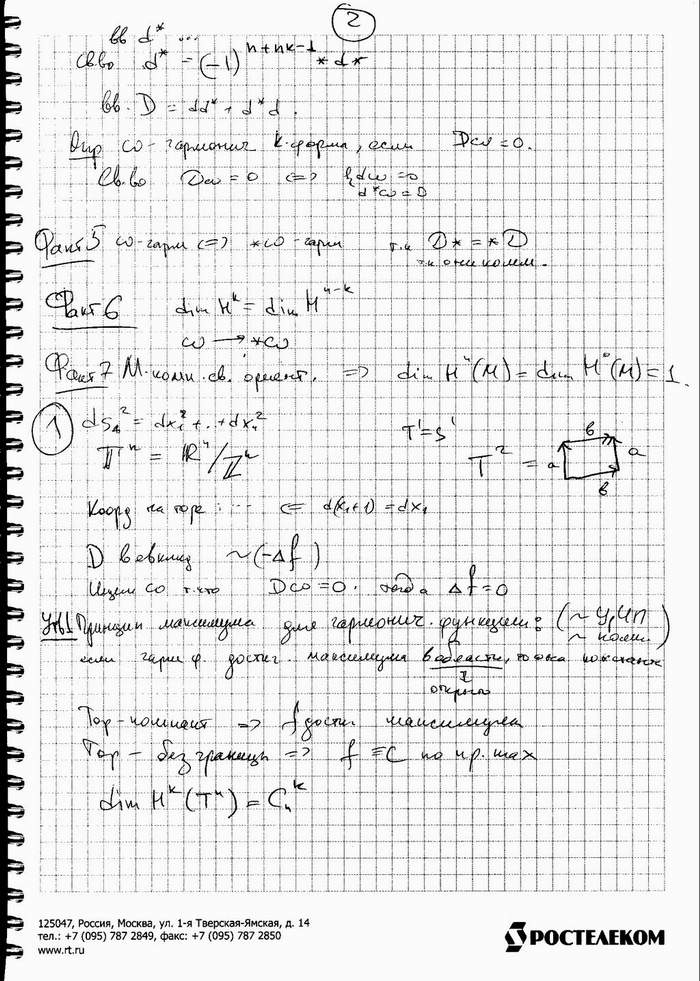 2
вв d* ...
Св.во d* = (-1)^{n+nk-1} *d*
вв. D = dd* + d*d.
Опр ω - гармонич k-форма, если Dω=0.
Св.во Dω = 0 <=> { dω=0
d*ω=0
Факт 5 ω-гарм <=> *ω-гарм т.к D* = *D
т.к они комм.
Факт 6 dim H^k = dim H^{n-k}
ω → *ω
Факт 7 M-комп. св. ориент. => dim H^n(M) = dim H^0(M) = 1.
1 ds² = dx₁² + .. + dxₙ² T¹=S¹
Tⁿ = ℝⁿ/ℤⁿ T² = a в a в
Коорд на торе: ... <= d(x₁+1) = dx₁
D в евклид ~(-Δf)
Ищем ω т.что Dω=0. тогда Δf=0
Утв1 Принцип максимума для гармонич. функций: (~ УрЧП
~ компл.)
если гарм ф. достиг. максимума в области, то она константа
открыто
Тор-компакт => f достиг максимума
Тор - без границы => f ≡ C по пр. max
dim H^k(Tⁿ) = C_n^k
125047, Россия, Москва, ул. 1-я Тверская-Ямская, д. 14
тел.: +7 (095) 787 2849, факс: +7 (095) 787 2850
www.rt.ru
РОСТЕЛЕКОМ